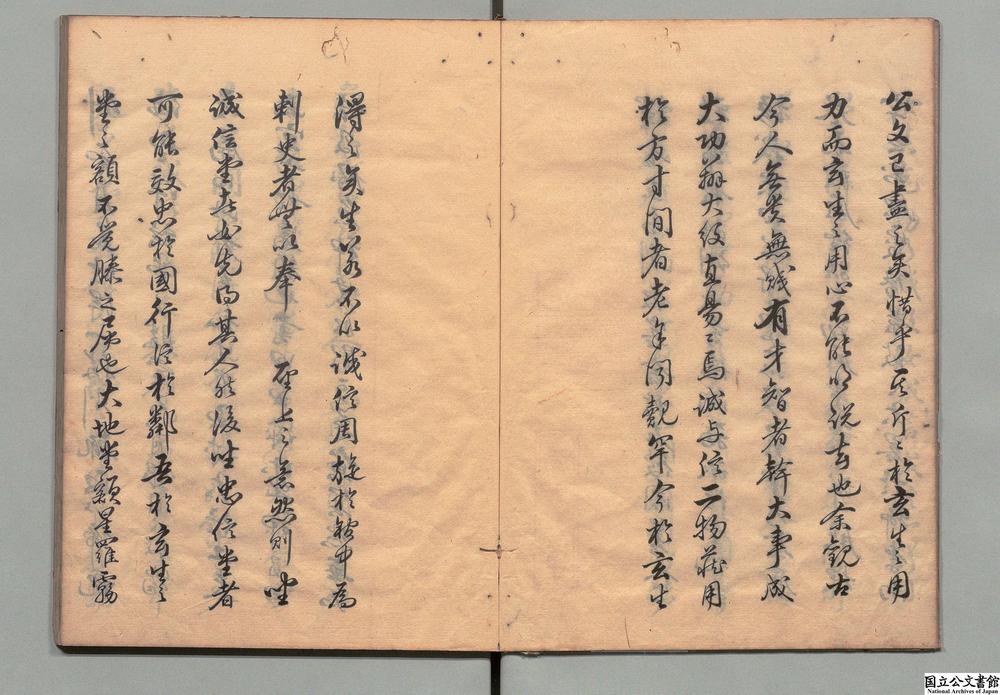 公文已盡之矣惜乎其斤〻於玄生之用
力而玄生之用心不能明説去也余観古
今人無貴無賤有才智者幹大事成
大功播大紋直易〻焉誠与信二物蔵用
於方寸間者老年闻覿罕今於玄生
得之矣生以為不以誠信周旋於館中為
刺史者無以奉聖上之意然則坐
誠信堂在必先得其人然後坐忠信堂者
可能效忠於國行信於鄰吾於玄生之
堂之額不覚膝之屈也大地堂額星羅霧
国立公文書館
National Archives of Japan